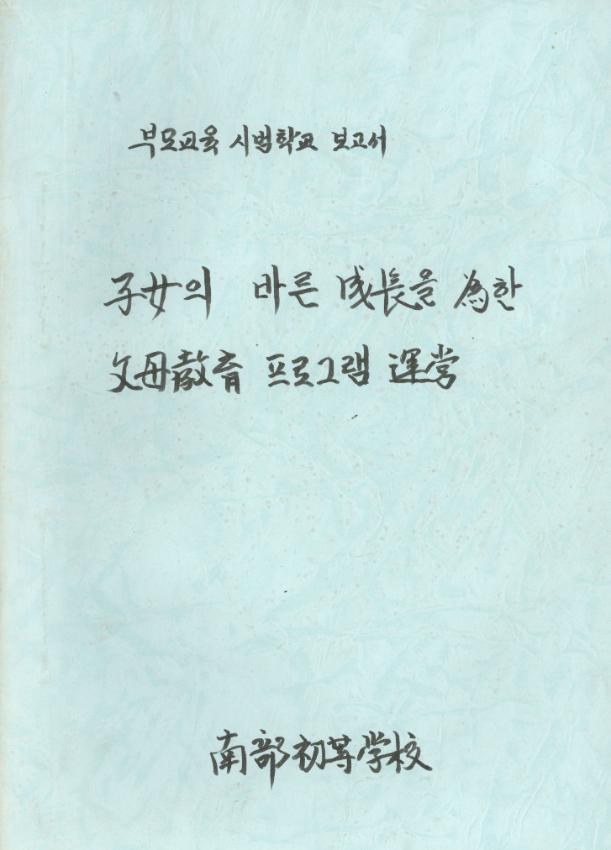 부모교육 시범학교 보고서
子女의 바른 成長을 為한
父母敎育 프로그램 運営
南部初等学校